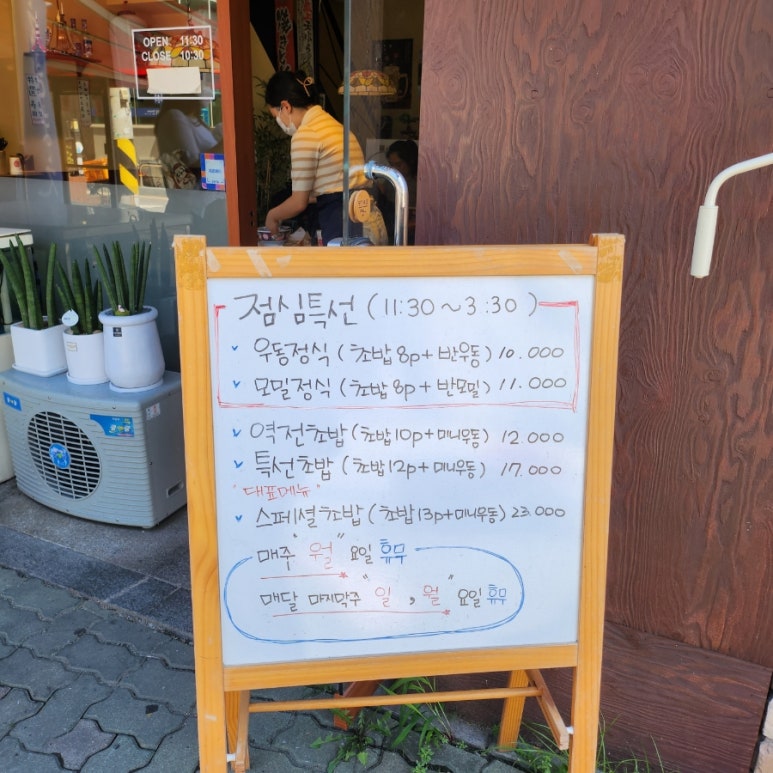 OPEN 11:30
CLOSE 10:30
점심특선 (11:30 ~ 3:30)
우동정식 (초밥 8p + 반우동) 10.000
모밀정식 (초밥 8p + 반모밀) 11.000
역전초밥 (초밥 10p + 미니우동) 12.000
특선초밥 (초밥 12p + 미니우동) 17.000
"대표메뉴"
스페셜초밥 (초밥 13p + 미니우동) 23.000
매주 "월" 요일 휴무
매달 마지막주 "일, 월" 요일 휴무